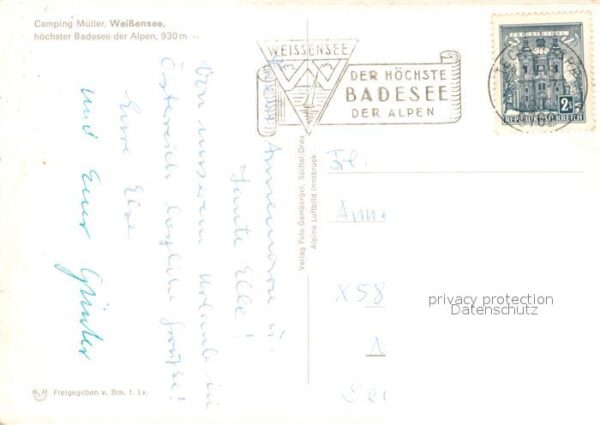 Camping Müller, Weißensee,
höchster Badesee der Alpen, 930 m
WEISSENSEE
DER HÖCHSTE
BADESEE
DER ALPEN
2S
REPUBLIK ÖSTERREICH
Annemarie u.
Tante Elle!
Von unserem Urlaub in
Österreich herzliche Grüße!
Eure Else
und Euer Günter
Frl.
Anne
X58
privacy protection
Datenschutz
Verlag Foto Gamberger, Spittal/Drau
Alpine Luftbild Innsbruck
Freigegeben v. Bm. f. Lv.